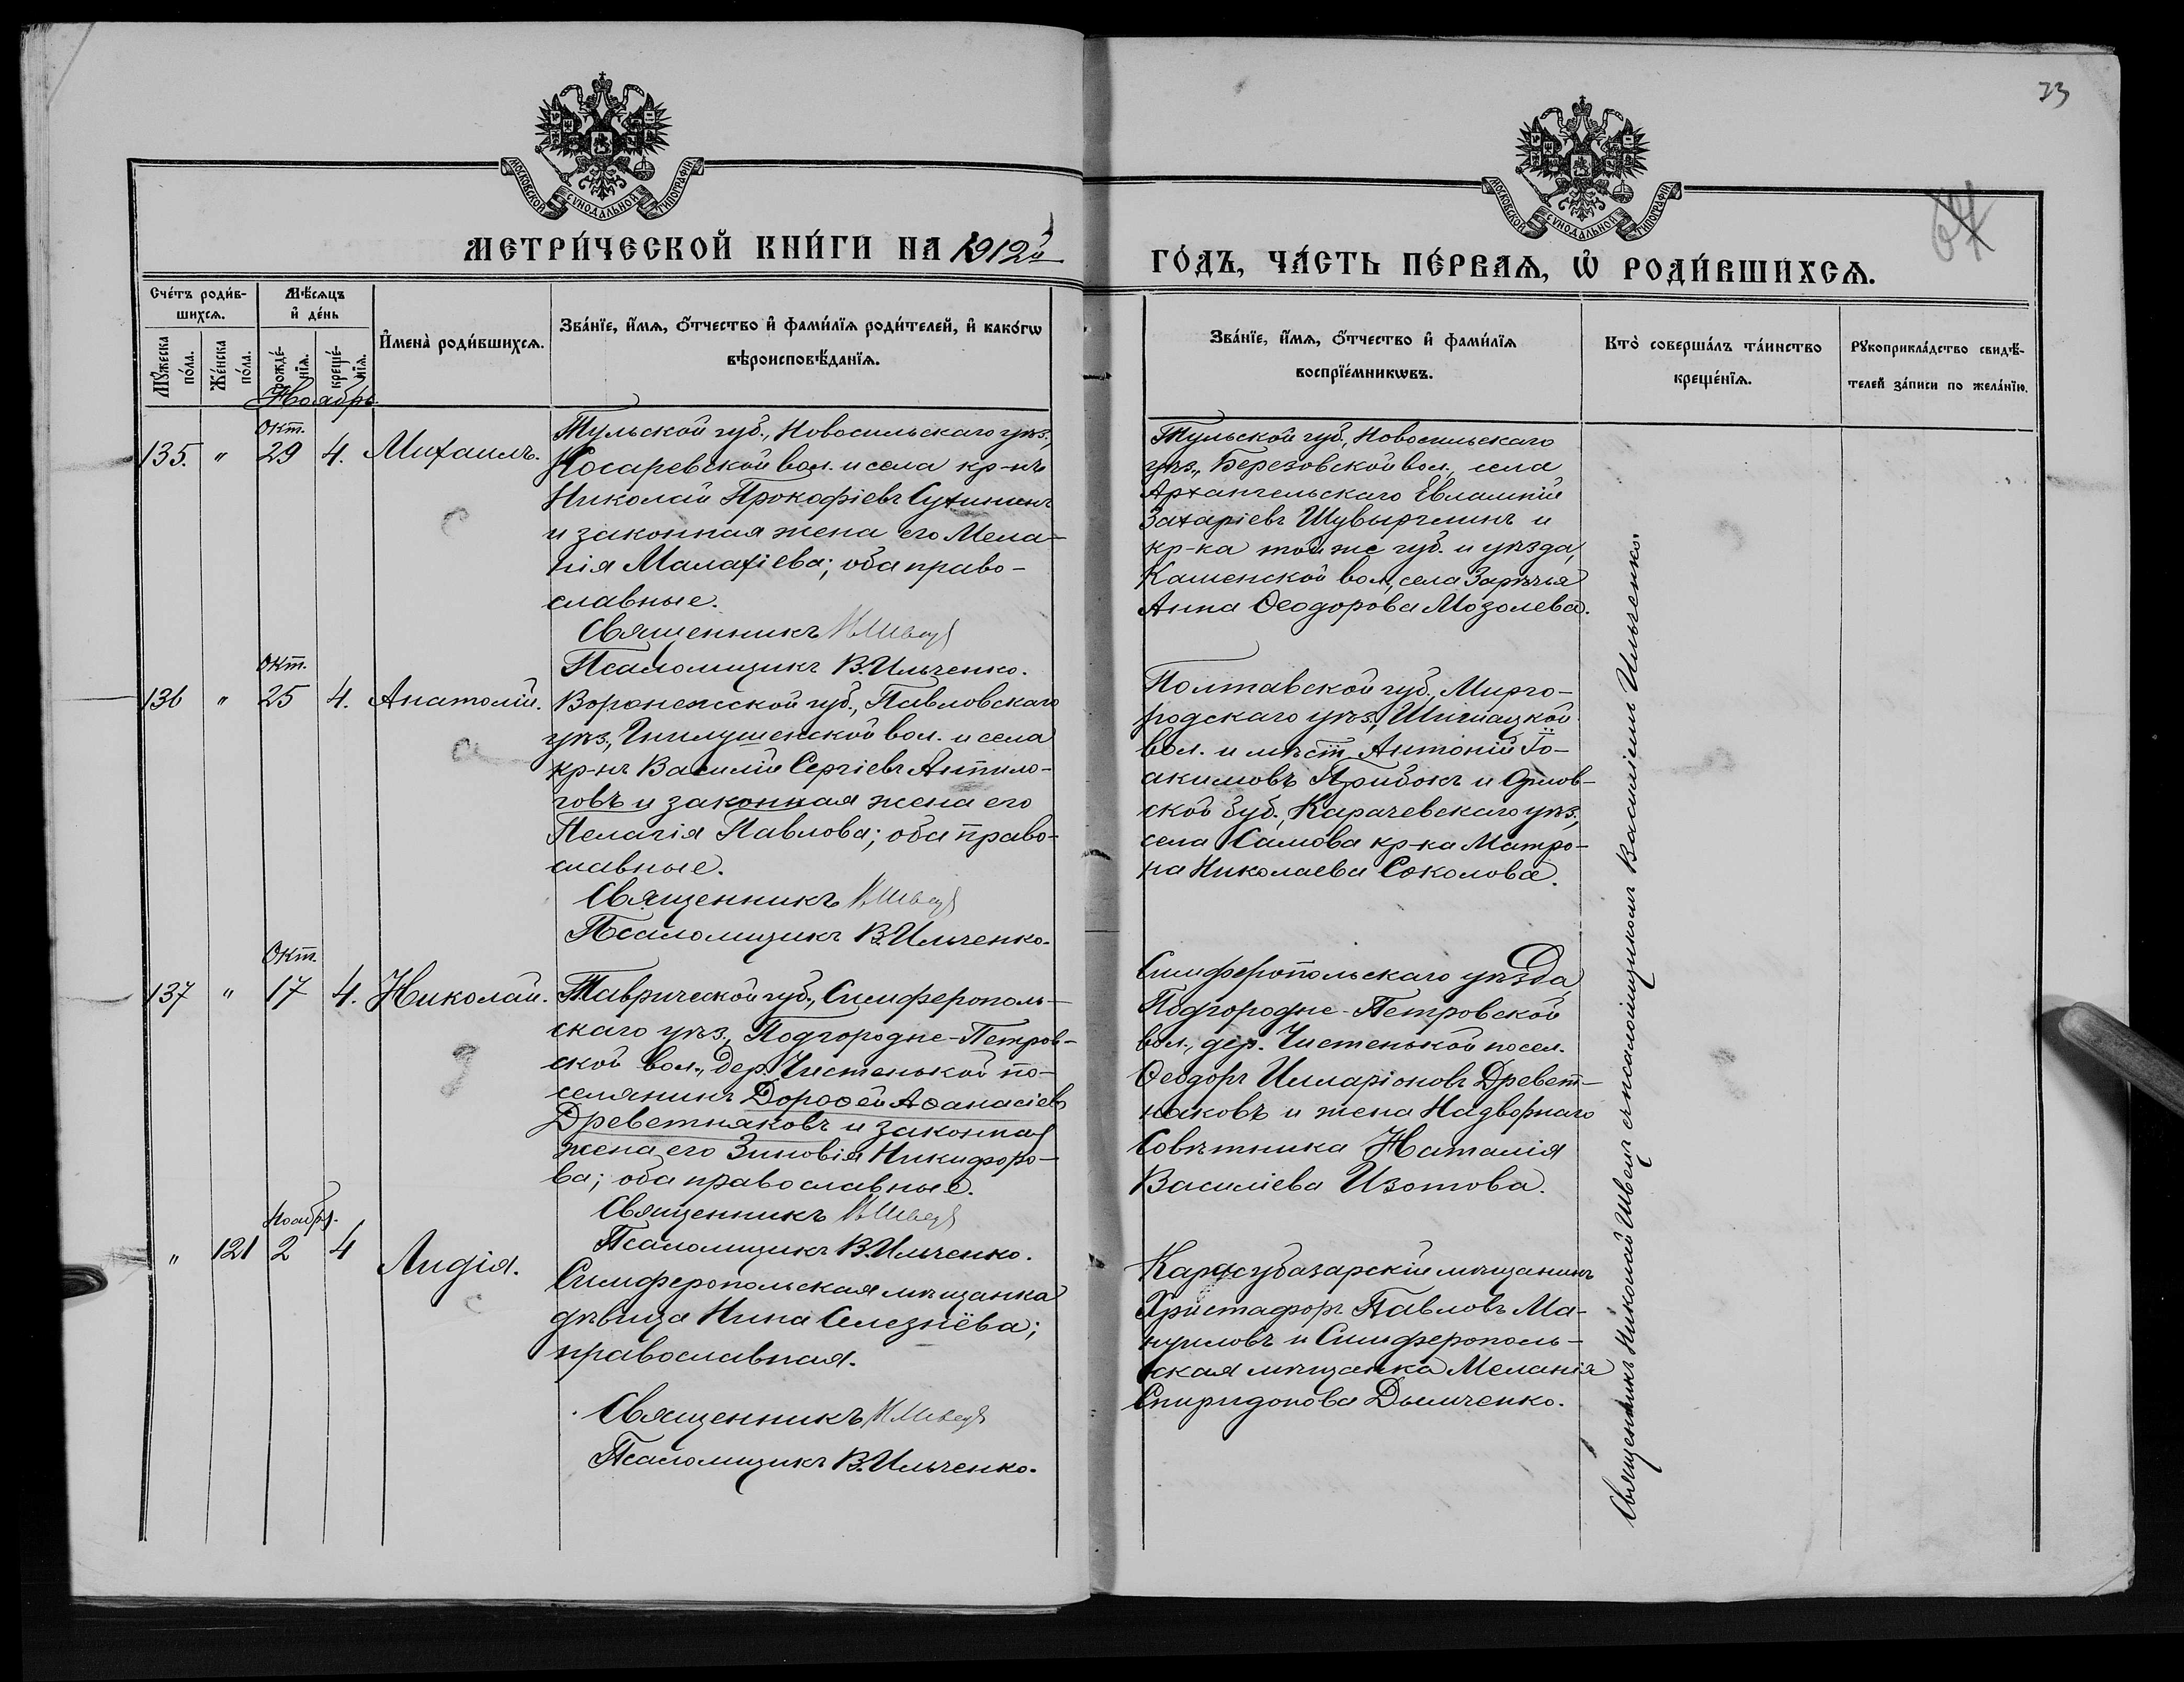 73
64
МОСКОВСКОЙ СѴНОДАЛЬНОЙ ТИПОГРАФІИ
МОСКОВСКОЙ СѴНОДАЛЬНОЙ ТИПОГРАФІИ
МЕТРИ́ЧЕСКОЙ КНИ́ГИ НА 1912й
ГО́ДЪ, ЧА́СТЬ ПЕ́РВАѦ, Ѡ҆ РОДИ́ВШИХСѦ.
Сче́тъ роди́в-
шихсѧ.
Мꙋ́жеска по́ла.
Же́нска по́ла.
Мѣ́сѧцъ
и҆ де́нь
рожде́-
нїѧ.
креще́-
нїѧ.
И҆мена̀ роди́вшихсѧ.
Зва́нїе, и҆́мѧ, ѻ҆́тчество и҆ фами́лїѧ роди́телей, и҆ како́гѡ
вѣроисповѣ́данїѧ.
Зва́нїе, и҆́мѧ, ѻ҆́тчество и҆ фами́лїѧ
воспрїе́мникѡвъ.
Кто̀ соверша́лъ та́инство
креще́нїѧ.
Рꙋкоприкла́дство свидѣ́-
телей за́писи по жела́нїю.
Ноябрь.
Окт.
135. " 29 4. Михаилъ.
Тульской губ., Новосильскаго уѣз.,
Косаревской вол. и села кр-нъ
Николай Прокофіевъ Сухининъ
и законная жена его Мела-
нія Малахіева; оба право-
славные.
Священникъ Н Швецъ
Псаломщикъ В. Ильченко.
Тульской губ., Новосильскаго
уѣз., Березовской вол., села
Архангельскаго Евлампій
Захаріевъ и
кр-ка той же губ. и уѣзда,
Каменской вол., села Зарѣчья
Анна Ѳеодорова Мозолева.
Окт.
136 " 25 4. Анатолій.
Воронежской губ., Павловскаго
уѣз., Гнилушенской вол. и села
кр-нъ Василій Сергіевъ Антило-
говъ и законная жена его
Пелагія Павлова; оба право-
славные.
Священникъ Н Швецъ
Псаломщикъ В. Ильченко.
Полтавской губ., Мирго-
родскаго уѣз., Шишацкой
вол. и мѣст. Антоній Іо-
акимовъ Грибокъ и Орлов-
ской губ., Карачевскаго уѣз.,
села Самова кр-ка Матро-
на Николаева Соколова.
Окт.
137 " 17 4. Николай.
Таврической губ., Симферополь-
скаго уѣз., Подгородне-Петров-
ской вол., дер. Чистенькой по-
селянинъ Дороѳей Аѳанасіевъ
Древетняковъ и законная
жена его Зиновія Никифоро-
ва; оба православные.
Священникъ Н Швецъ
Псаломщикъ В. Ильченко.
Симферопольскаго уѣзда,
Подгородне-Петровской
вол., дер. Чистенькой посел.
Ѳеодоръ Илларіоновъ Древет-
няковъ и жена Надворнаго
Совѣтника Наталія
Василіева Изотова.
Ноябр.
" 121 2 4 Лидія.
Симферопольская мѣщанка
дѣвица Нина Селезнёва;
православная.
Священникъ Н Швецъ
Псаломщикъ В. Ильченко.
Карасубазарскій мѣщанинъ
Христафоръ Павловъ Ма-
нуиловъ и Симферополь-
ская мѣщанка Меланія
Спиридонова Дымченко.
Священникъ Николай Швецъ съ псаломщикомъ Василіемъ Ильченко.